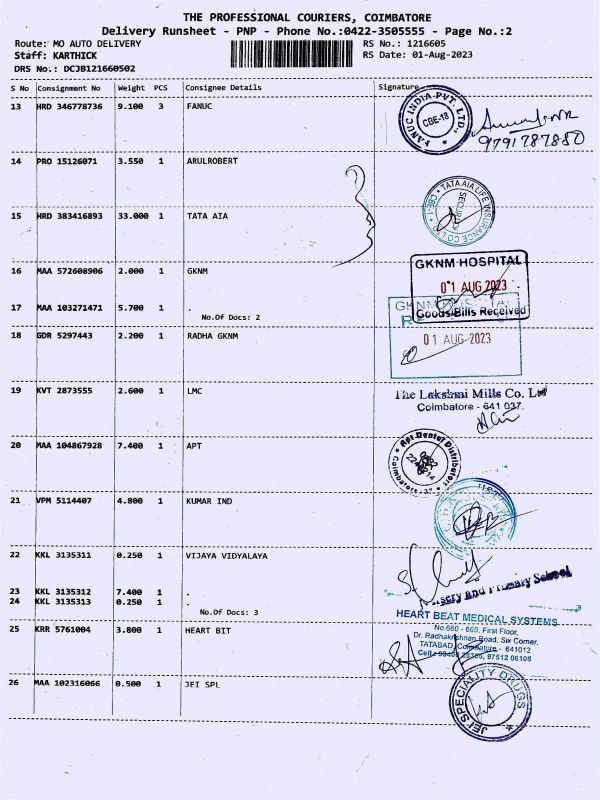 THE PROFESSIONAL COURIERS, COIMBATORE
Delivery Runsheet - PNP - Phone No.:0422-3505555 - Page No.:2
Route: MO AUTO DELIVERY RS No.: 1216605
Staff: KARTHICK RS Date: 01-Aug-2023
DRS No.: DCJB121660502
S No Consignment No Weight PCS Consignee Details Signature
13 HRD 346778736 9.100 3 FANUC
FANUC INDIA PVT. LTD.,
CBE-18
9791787880
14 PRO 15126071 3.550 1 ARULROBERT
15 HRD 383416893 33.000 1 TATA AIA
TATA AIA LIFE INSURANCE CO LTD
SECURITY
CBE-1
16 MAA 572608906 2.000 1 GKNM
GKNM HOSPITAL
01 AUG 2023
Goods/Bills Received
17 MAA 103271471 5.700 1 .
No.Of Docs: 2
18 GDR 5297443 2.200 1 RADHA GKNM
01 AUG 2023
19 KVT 2873555 2.600 1 LMC
The Lakshmi Mills Co. Ltd
Coimbatore - 641 037.
20 MAA 104867928 7.400 1 APT
Apt Dental Distributors
Coimbatore-37
21 VPM 5114407 4.800 1 KUMAR IND
22 KKL 3135311 0.250 1 VIJAYA VIDYALAYA
23 KKL 3135312 7.400 1 .
24 KKL 3135313 0.250 1 .
No.Of Docs: 3
Nursery and Primary School
25 KRR 5761004 3.800 1 HEART BIT
HEART BEAT MEDICAL SYSTEMS
No.660 - 665, First Floor,
Dr. Radhakrishnan Road, Six Corner,
TATABAD, Coimbatore - 641012
Cell : 97512 06106
26 MAA 102316066 0.500 1 JEI SPL
JEI SPECIALITY DRUGS